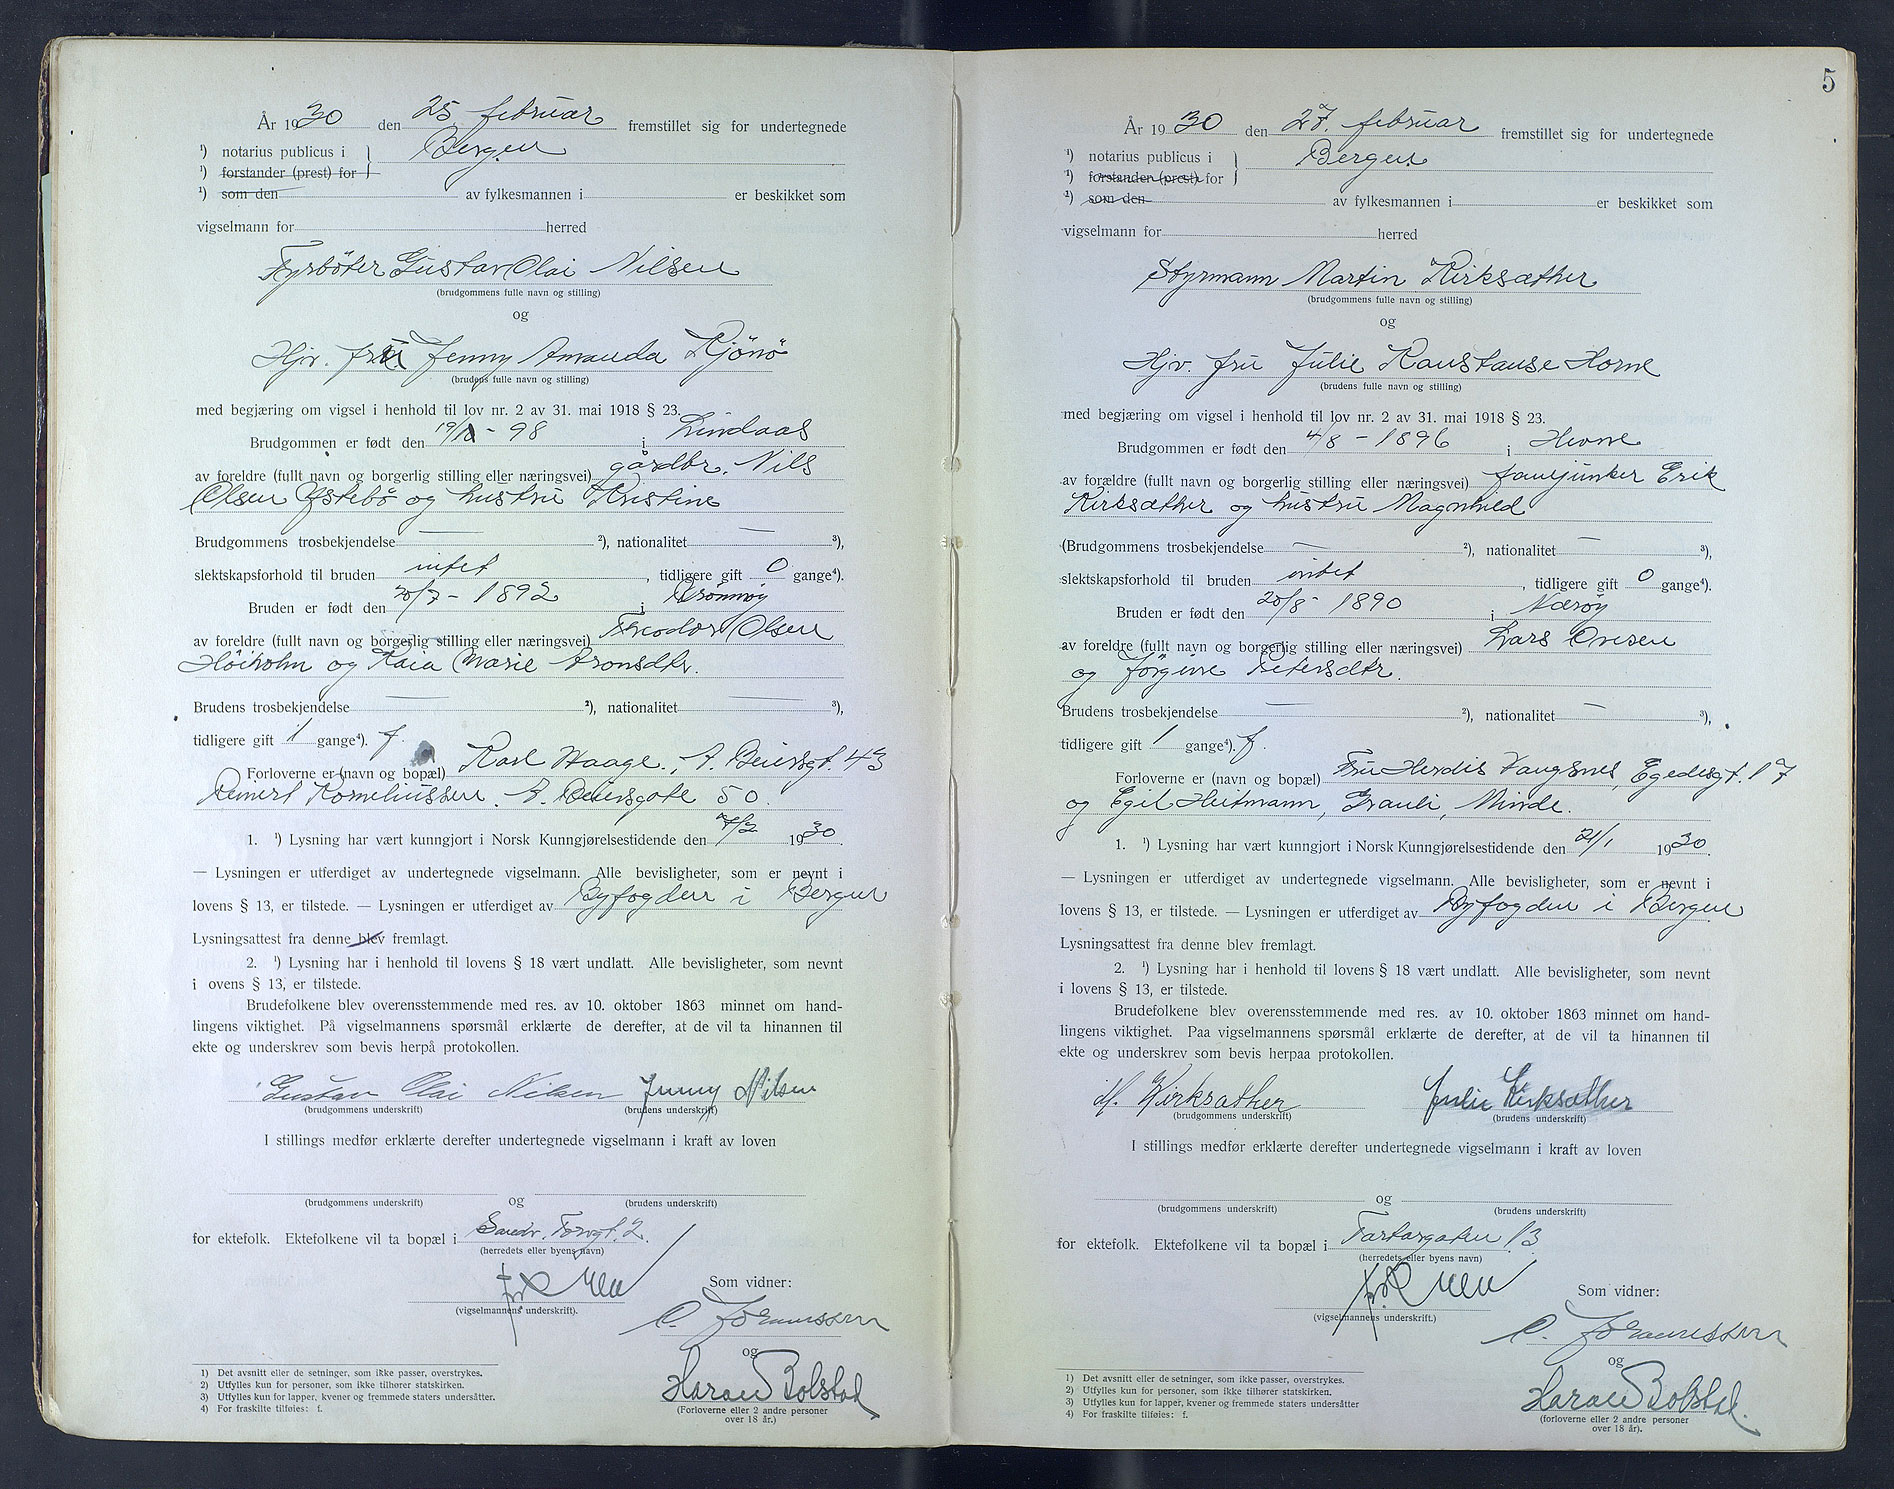 År 1930 den 25. februar fremstillet sig for undertegnede
¹) notarius publicus i } Bergen
¹) forstander (prest) for
¹) som den av fylkesmannen i er beskikket som
vigselmann for herred
Fyrbøter Gustav Olai Nilsen
(brudgommens fulle navn og stilling)
og
Hjv. fru Jenny Amanda Kjönö
(brudens fulle navn og stilling)
med begjæring om vigsel i henhold til lov nr. 2 av 31. mai 1918 § 23.
Brudgommen er født den 19/ - 98 i Lindaas
av foreldre (fullt navn og borgerlig stilling eller næringsvei) gårdbr. Nils
Olsen Østebö og hustru Kristine
Brudgommens trosbekjendelse — ²), nationalitet — ³),
slektskapsforhold til bruden intet, tidligere gift 0 gange⁴).
Bruden er født den 20/7 - 1892 i Brönnöy
av foreldre (fullt navn og borgerlig stilling eller næringsvei) Theodor Olsen
Höiholm og Kaia Marie Aronsdtr.
Brudens trosbekjendelse — ²), nationalitet — ³),
tidligere gift 1 gange⁴). f.
Forloverne er (navn og bopæl) Karl Haage, A. Beiersgt. 43
Reinert Korneliussen, A. Beiersgate 50.
1. ¹) Lysning har vært kunngjort i Norsk Kunngjørelsestidende den /2 1930.
— Lysningen er utferdiget av undertegnede vigselmann. Alle bevisligheter, som er nevnt i
lovens § 13, er tilstede. — Lysningen er utferdiget av Byfogden i Bergen
Lysningsattest fra denne blev fremlagt.
2. ¹) Lysning har i henhold til lovens § 18 vært undlatt. Alle bevisligheter, som nevnt
i ovens § 13, er tilstede.
Brudefolkene blev overensstemmende med res. av 10. oktober 1863 minnet om hand-
lingens viktighet. På vigselmannens spørsmål erklærte de derefter, at de vil ta hinannen til
ekte og underskrev som bevis herpå protokollen.
Gustav Olai Nilsen Jenny Nilsen
(brudgommens underskrift) (brudens underskrift)
I stillings medfør erklærte derefter undertegnede vigselmann i kraft av loven
og
(brudgommens underskrift) (brudens underskrift)
for ektefolk. Ektefolkene vil ta bopæl i Sandv. Torvgt. 2.
(herredets eller byens navn)
Som vidner:
(vigselmannens underskrift).
C. Johannessen
og
Harald Bolstad
(Forloverne eller 2 andre personer
over 18 år.)
1) Det avsnitt eller de setninger, som ikke passer, overstrykes.
2) Utfylles kun for personer, som ikke tilhører statskirken.
3) Utfylles kun for lapper, kvener og fremmede staters undersåtter.
4) For fraskilte tilføies: f.
5
År 1930 den 27. februar fremstillet sig for undertegnede
¹) notarius publicus i } Bergen
¹) forstander (prest) for
¹) som den av fylkesmannen i er beskikket som
vigselmann for herred
Styrmann Martin Kirksæther
(brudgommens fulle navn og stilling)
og
Hjv. fru Julie Konstanse Horne
(brudens fulle navn og stilling)
med begjæring om vigsel i henhold til lov nr. 2 av 31. mai 1918 § 23.
Brudgommen er født den 4/8 - 1896 i Hevne
av foreldre (fullt navn og borgerlig stilling eller næringsvei) fanejunker Erik
Kirksæther og hustru Magnhild
(Brudgommens trosbekjendelse — ²), nationalitet — ³),
slektskapsforhold til bruden intet, tidligere gift 0 gange⁴).
Bruden er født den 20/8 - 1890 i Nærøy
av foreldre (fullt navn og borgerlig stilling eller næringsvei) Lars Ovesen
og Jörgine Petersdtr.
Brudens trosbekjendelse — ²), nationalitet — ³),
tidligere gift 1 gange⁴). f.
Forloverne er (navn og bopæl) Fru Herdis Vangsnes, Egedesgt. 17
og Egil Heitmann, Grauli, Minde.
1. ¹) Lysning har vært kunngjort i Norsk Kunngjørelsestidende den 21/1 1930.
— Lysningen er utferdiget av undertegnede vigselmann. Alle bevisligheter, som er nevnt i
lovens § 13, er tilstede. — Lysningen er utferdiget av Byfogden i Bergen
Lysningsattest fra denne blev fremlagt.
2. ¹) Lysning har i henhold til lovens § 18 vært undlatt. Alle bevisligheter, som nevnt
i lovens § 13, er tilstede.
Brudefolkene blev overensstemmende med res. av 10. oktober 1863 minnet om hand-
lingens viktighet. Paa vigselmannens spørsmål erklærte de derefter, at de vil ta hinannen til
ekte og underskrev som bevis herpaa protokollen.
M. Kirksæther Julie Kirksæther
(brudgommens underskrift) (brudens underskrift)
I stillings medfør erklærte derefter undertegnede vigselmann i kraft av loven
og
(brudgommens underskrift) (brudens underskrift)
for ektefolk. Ektefolkene vil ta bopæl i Tartargaten 13
(herredets eller byens navn)
Som vidner:
(vigselmannens underskrift.)
C. Johannessen
og
Harald Bolstad.
(forloverne eller 2 andre personer
over 18 år).
1) Det avsnitt eller de setninger, som ikke passer, overstrykes.
2) Utfylles kun for personer, som ikke tilhører statskirken.
3) Utfylles kun for lapper, kvener og fremmede staters undersåtter
4) For fraskilte tilføies: f.